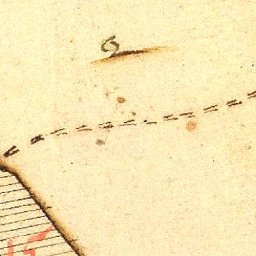 6
15